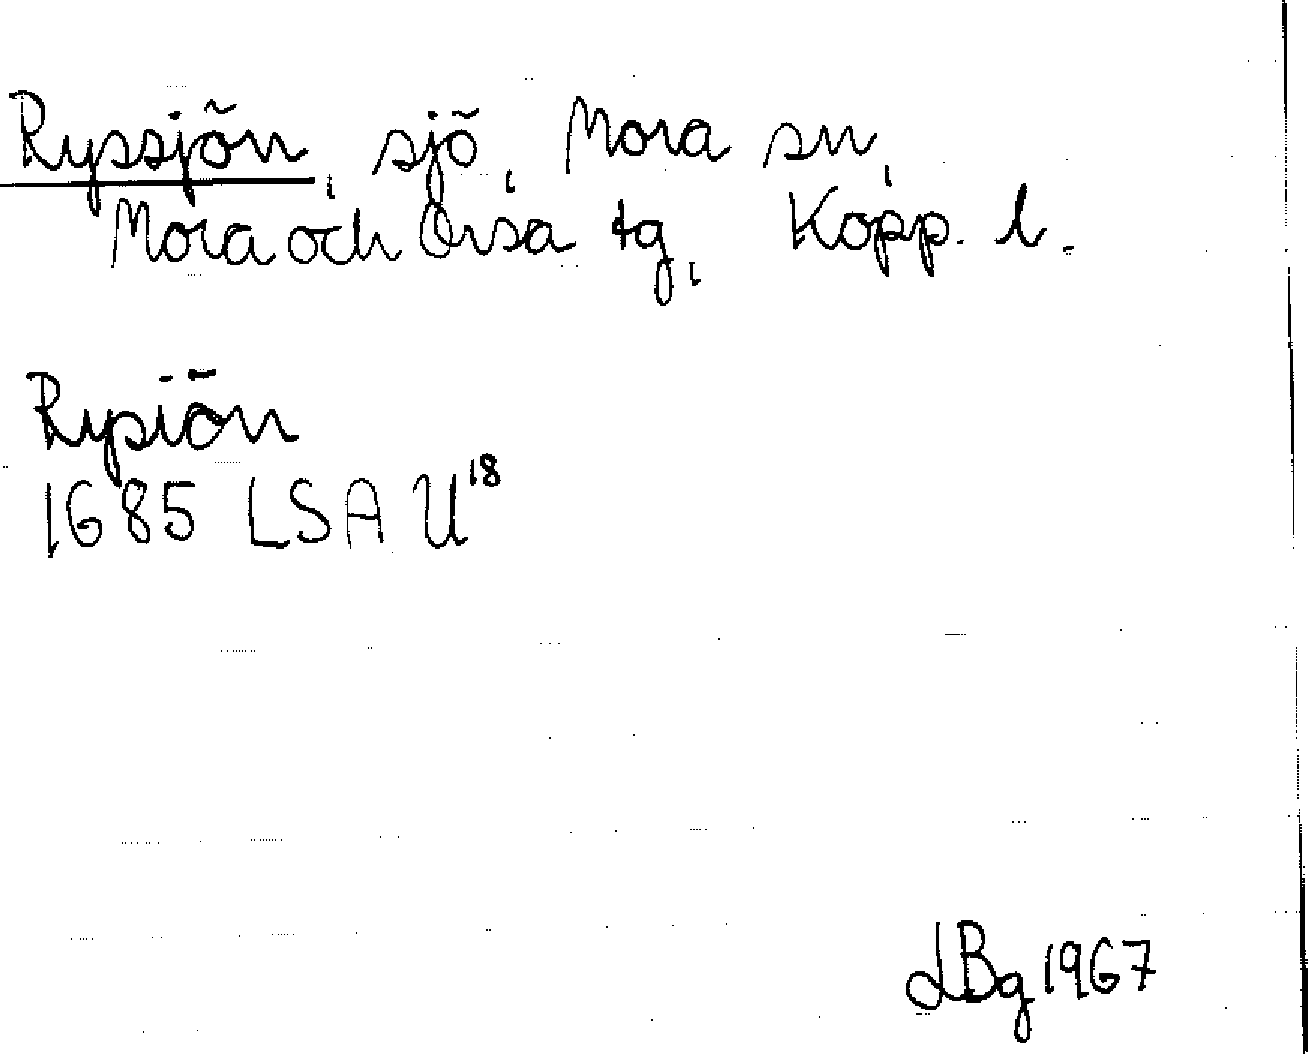 Ryssjön, sjö, Mora sn,
Mora och Orsa tg, Kopp. l.
Rysiön
1685 LSA U¹⁸
LBg 1967